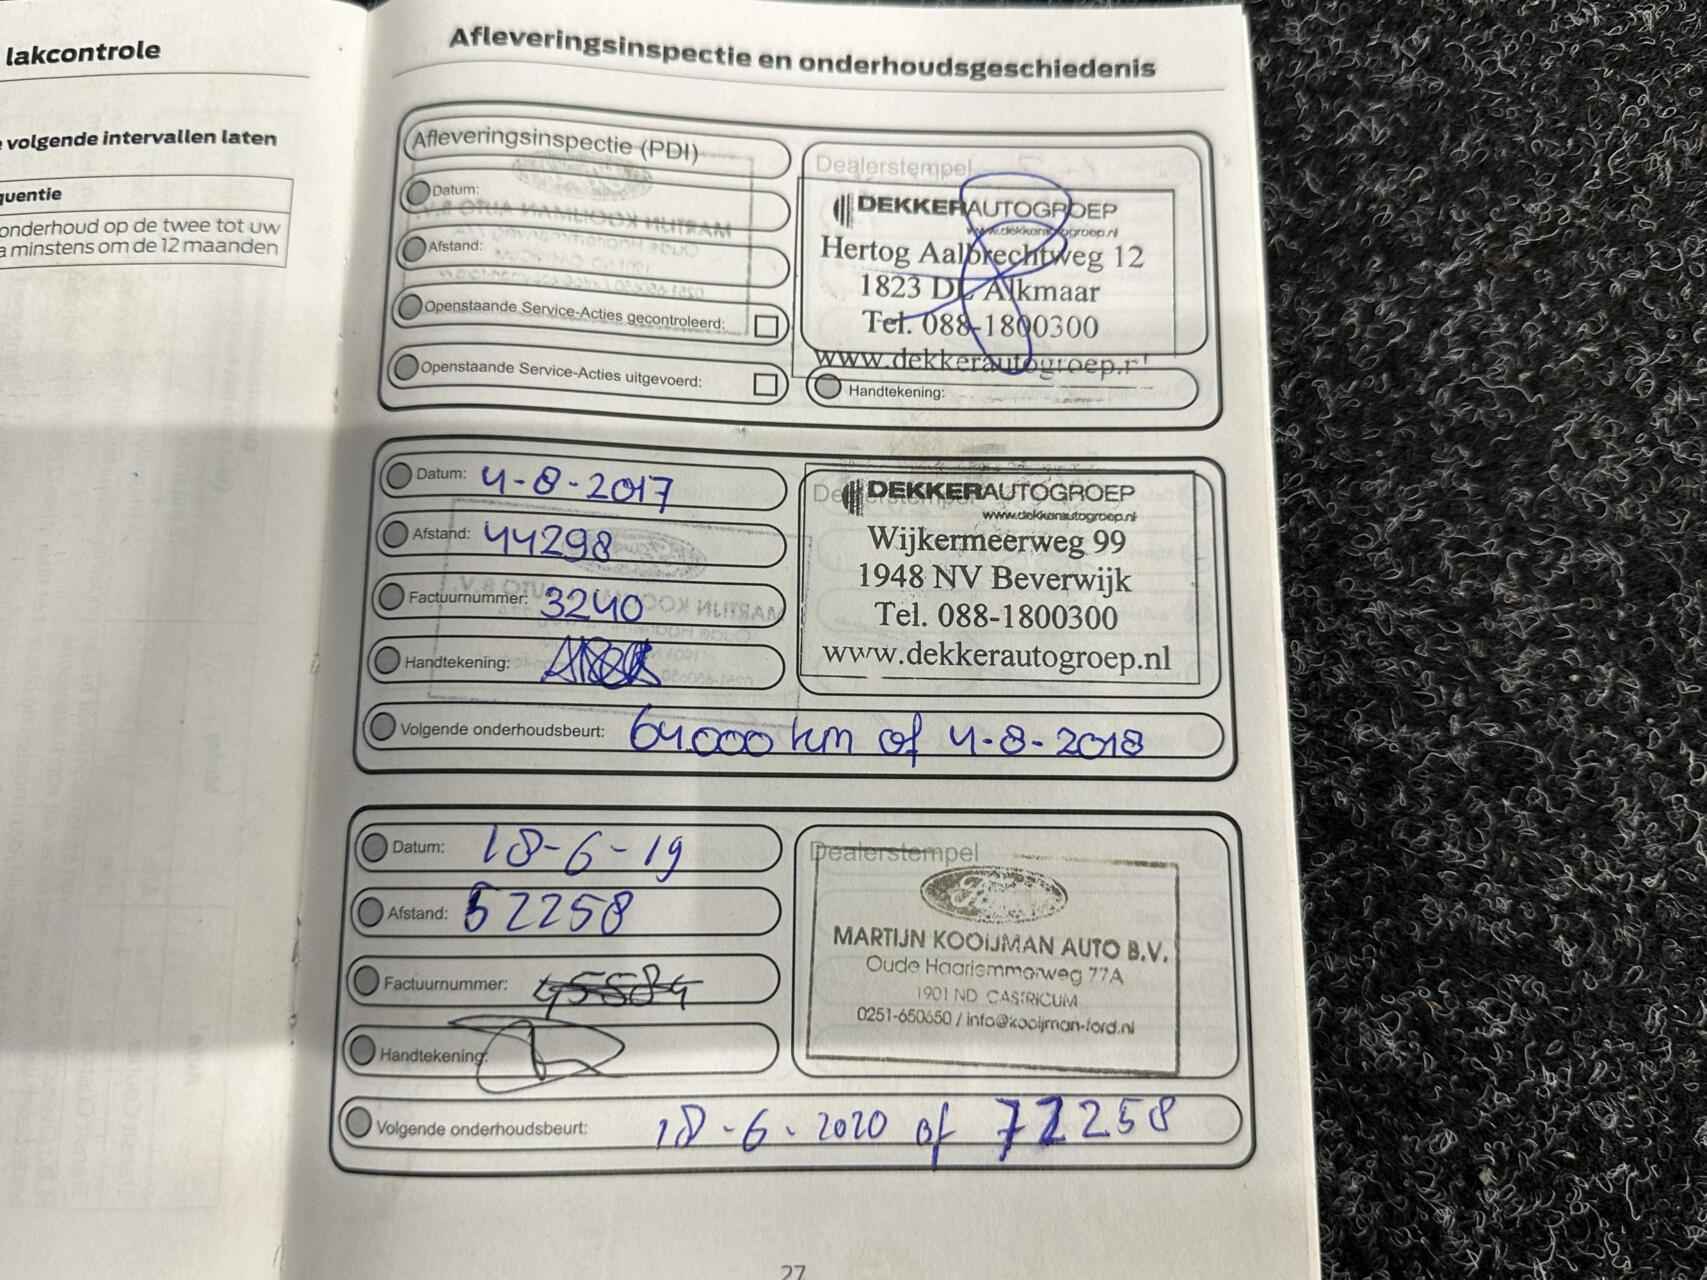 lakcontrole
volgende intervallen laten
quentie
onderhoud op de twee tot uw
a minstens om de 12 maanden
Afleveringsinspectie en onderhoudsgeschiedenis
Afleveringsinspectie (PDI)
Datum:
Afstand:
Openstaande Service-Acties gecontroleerd:
Openstaande Service-Acties uitgevoerd:
Dealerstempel
DEKKERAUTOGROEP
www.dekkerautogroep.nl
Hertog Aalbrechtweg 12
1823 DL Alkmaar
Tel. 088-1800300
www.dekkerautogroep.nl
Handtekening:
Datum: 4-8-2017
Afstand: 44298
Factuurnummer: 3240
Handtekening:
Dealerstempel
DEKKERAUTOGROEP
www.dekkerautogroep.nl
Wijkermeerweg 99
1948 NV Beverwijk
Tel. 088-1800300
www.dekkerautogroep.nl
Volgende onderhoudsbeurt: 64.000 km of 4-8-2018
Datum: 18-6-19
Afstand: 52258
Factuurnummer:
Handtekening:
Dealerstempel
Ford
MARTIJN KOOIJMAN AUTO B.V.
Oude Haarlemmerweg 77A
1901 ND CASTRICUM
0251-650650 / info@kooijman-ford.nl
Volgende onderhoudsbeurt: 18-6-2020 of 72258
27